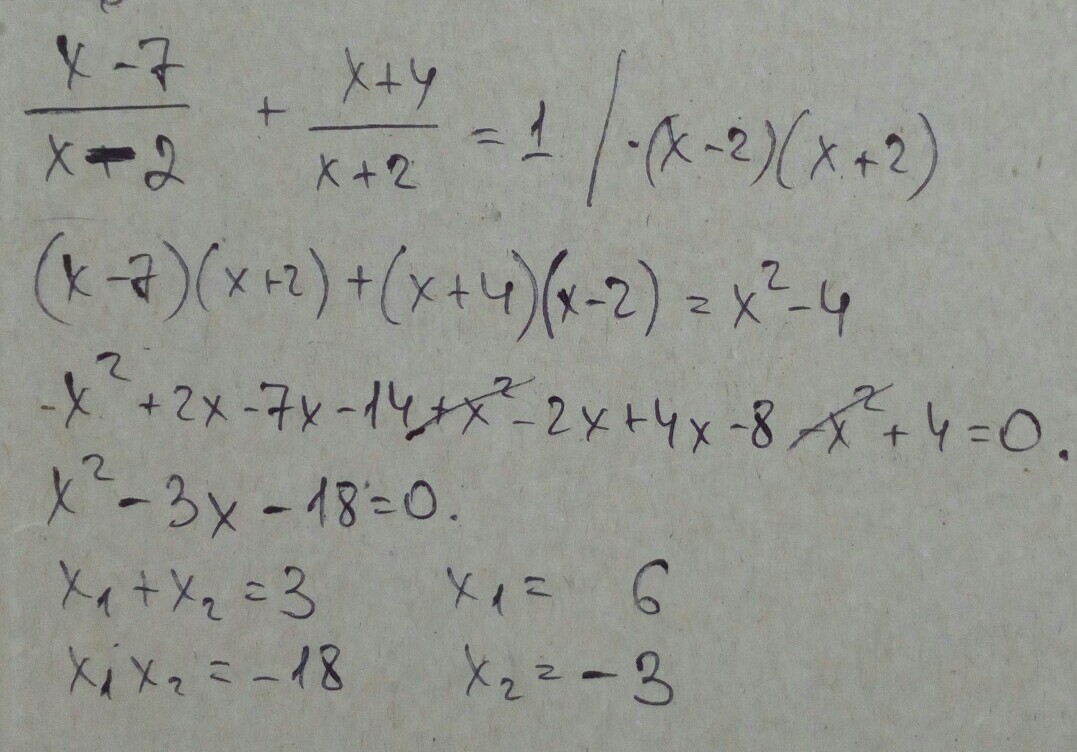 x-7/x-2 + x+4/x+2 = 1 / ·(x-2)(x+2)
(x-7)(x+2)+(x+4)(x-2) = x²-4
-x²+2x-7x-14+x²-2x+4x-8-x²+4=0.
x²-3x-18=0.
x₁+x₂=3 x₁= 6
x₁x₂=-18 x₂=-3